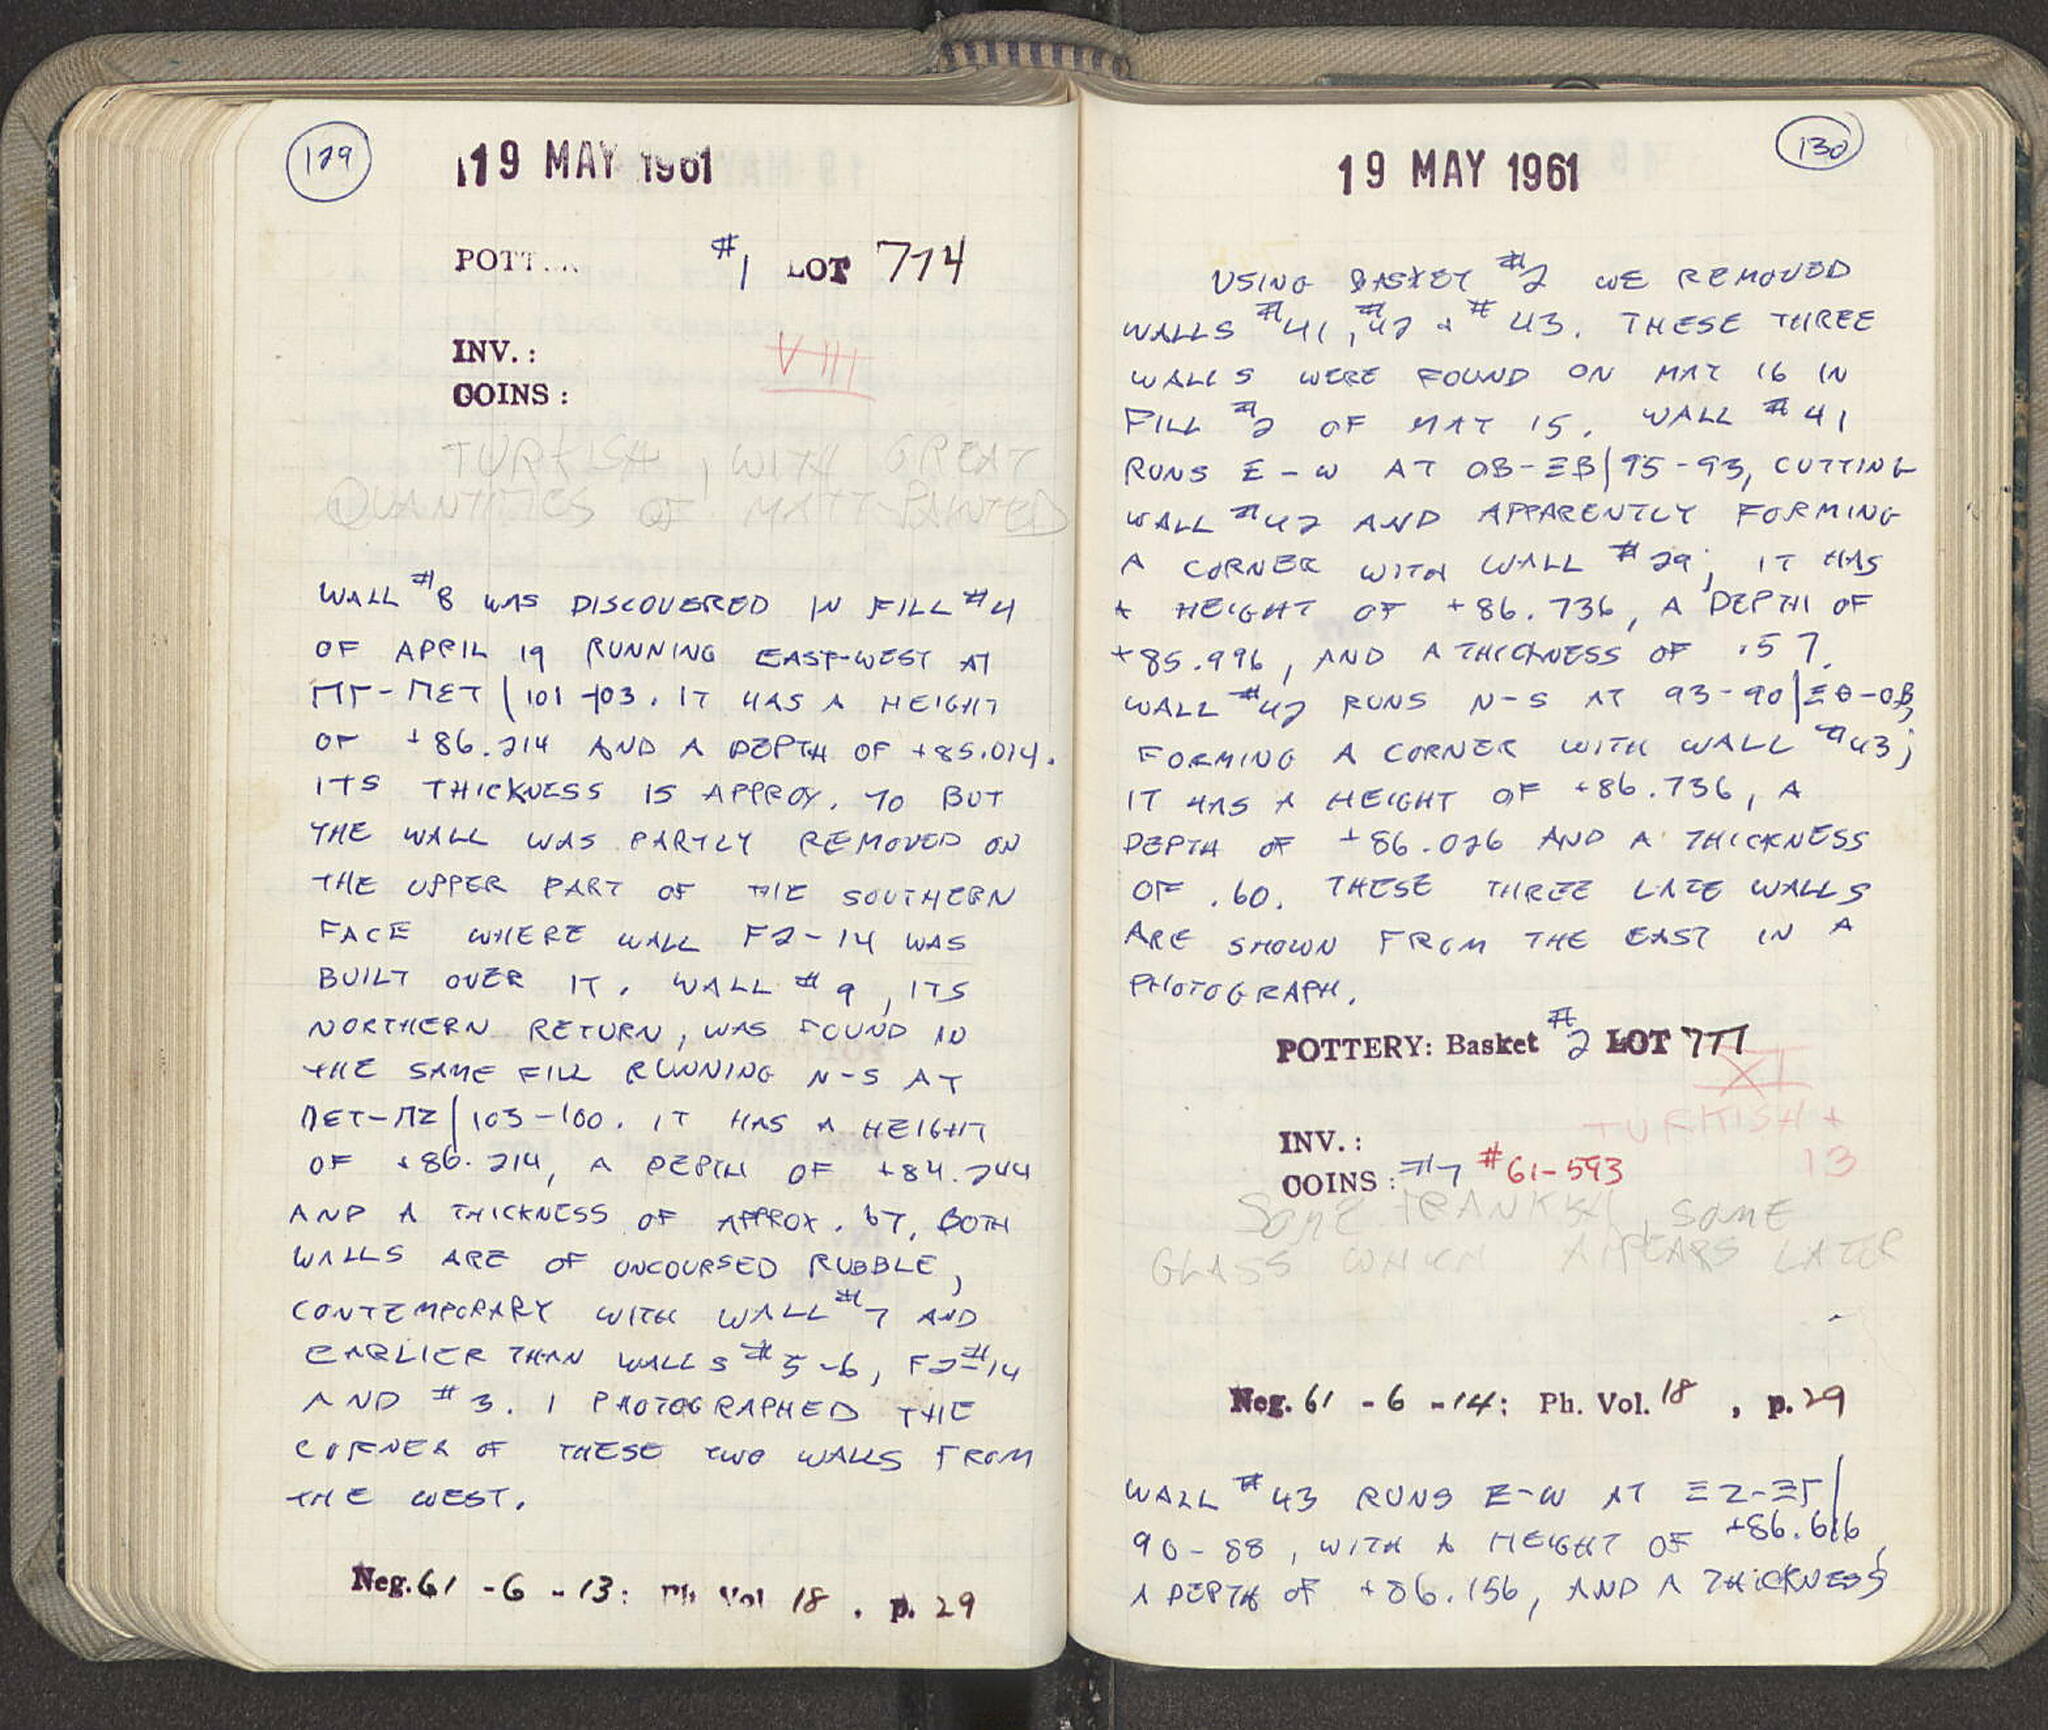 129
19 MAY 1961
POTT #1 LOT 774
INV.:
VIII
COINS:
TURKISH, WITH GREAT
QUANTITIES OF MATT-PAINTED
WALL #8 WAS DISCOVERED IN FILL #4
OF APRIL 19 RUNNING EAST-WEST AT
ΠΓ-ΠΕΤ/101-103. IT HAS A HEIGHT
OF +86.214 AND A DEPTH OF +85.014.
ITS THICKNESS IS APPROX. 70 BUT
THE WALL WAS PARTLY REMOVED ON
THE UPPER PART OF THE SOUTHERN
FACE WHERE WALL F2-14 WAS
BUILT OVER IT. WALL #9, ITS
NORTHERN RETURN, WAS FOUND IN
THE SAME FILL RUNNING N-S AT
ΠΕΤ-ΠΖ/103-100. IT HAS A HEIGHT
OF +86.214, A DEPTH OF +84.244
AND A THICKNESS OF APPROX. 67. BOTH
WALLS ARE OF UNCOURSED RUBBLE,
CONTEMPORARY WITH WALL #7 AND
EARLIER THAN WALLS #5-6, F2-#14
AND #3. I PHOTOGRAPHED THE
CORNER OF THESE TWO WALLS FROM
THE WEST.
Neg. 61 - 6 - 13: Ph. Vol 18. p. 29
130
19 MAY 1961
USING BASKET #2 WE REMOVED
WALLS #41, #42 + #43. THESE THREE
WALLS WERE FOUND ON MAY 16 IN
FILL #2 OF MAY 15. WALL #41
RUNS E-W AT ΟΒ-ΞΒ/95-93, CUTTING
WALL #42 AND APPARENTLY FORMING
A CORNER WITH WALL #29; IT HAS
A HEIGHT OF +86.736, A DEPTH OF
+85.996, AND A THICKNESS OF .57.
WALL #42 RUNS N-S AT 93-90/ΞΘ-ΟΒ,
FORMING A CORNER WITH WALL #43;
IT HAS A HEIGHT OF +86.736, A
DEPTH OF +86.026 AND A THICKNESS
OF .60. THESE THREE LATE WALLS
ARE SHOWN FROM THE EAST IN A
PHOTOGRAPH.
POTTERY: Basket #2 LOT 777
XI
TURKISH +
13
INV.:
COINS: #7 #61-593
SOME FRANKISH, SOME
GLASS WHICH APPEARS LATER
Neg. 61 - 6 - 14: Ph. Vol. 18, p. 29
WALL #43 RUNS E-W AT ΞΖ-ΞΓ/
90-88, WITH A HEIGHT OF +86.616,
A DEPTH OF +86.156, AND A THICKNESS